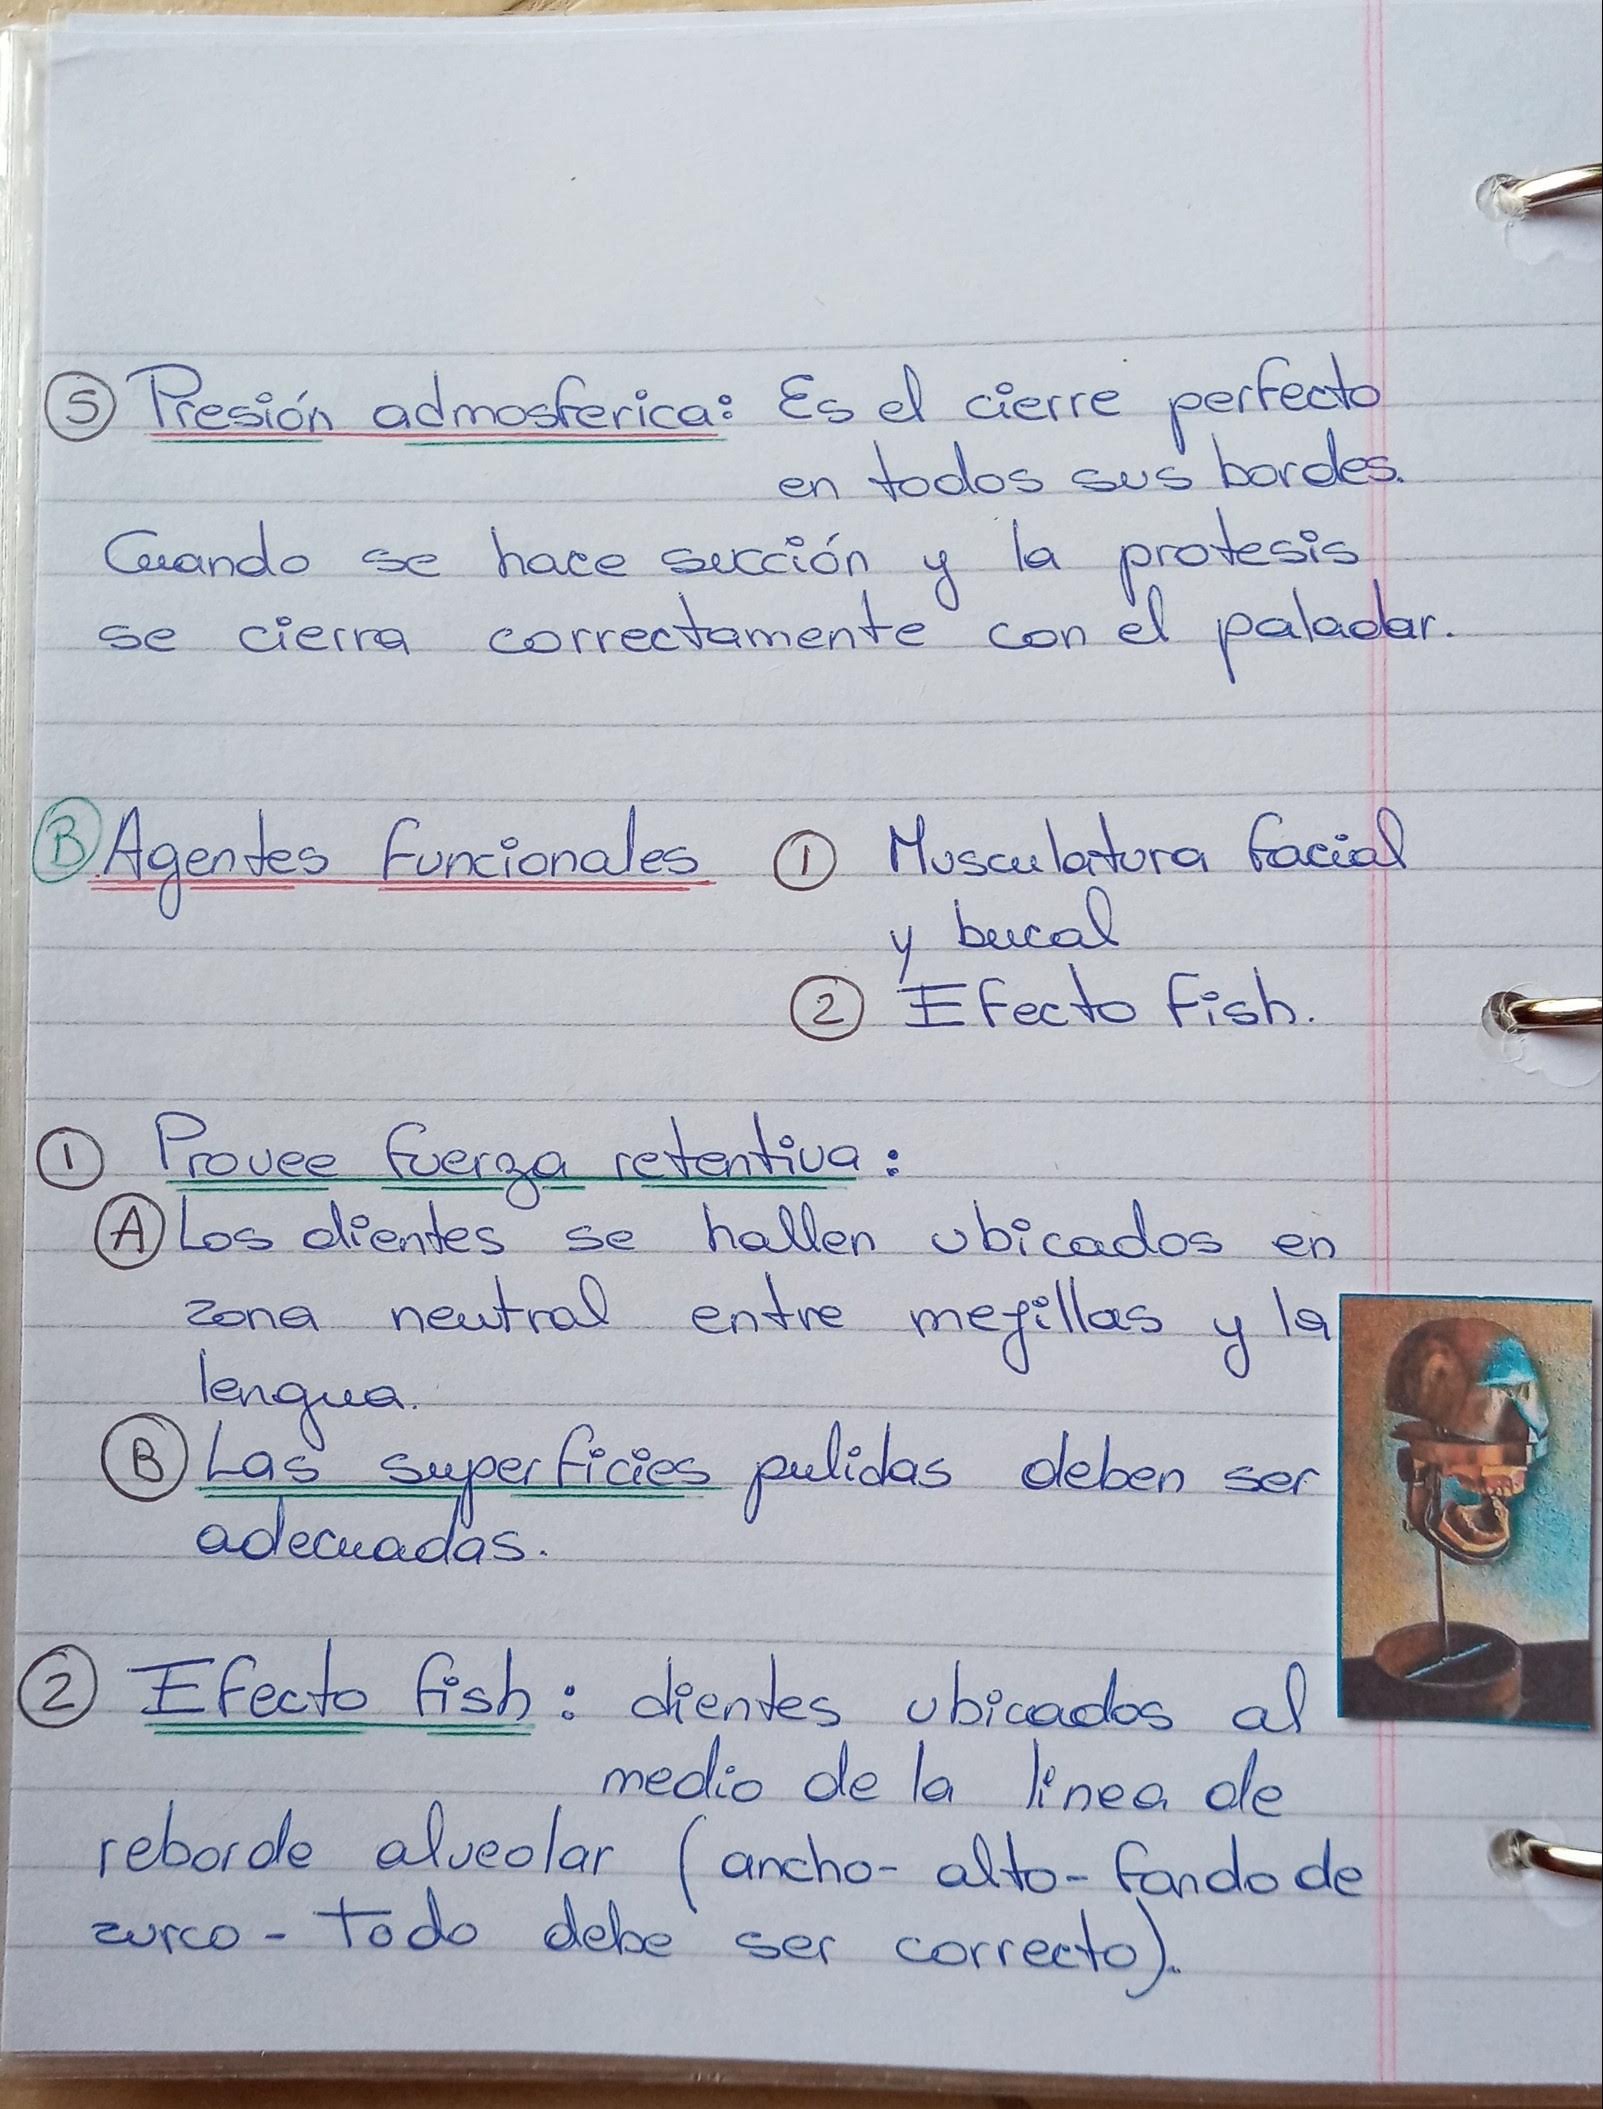 ⑤ Presión admosferica: Es el cierre perfecto
en todos sus bordes.
Cuando se hace succión y la protesis
se cierra correctamente con el paladar.
Ⓑ Agentes funcionales ① Musculatura facial
y bucal
② Efecto Fish.
① Provee fuerza retentiva:
Ⓐ Los dientes se hallen ubicados en
zona neutral entre mejillas y la
lengua.
Ⓑ Las superficies pulidas deben ser
adecuadas.
② Efecto fish: dientes ubicados al
medio de la linea de
reborde alveolar (ancho-alto-fondo de
zurco - Todo debe ser correcto).